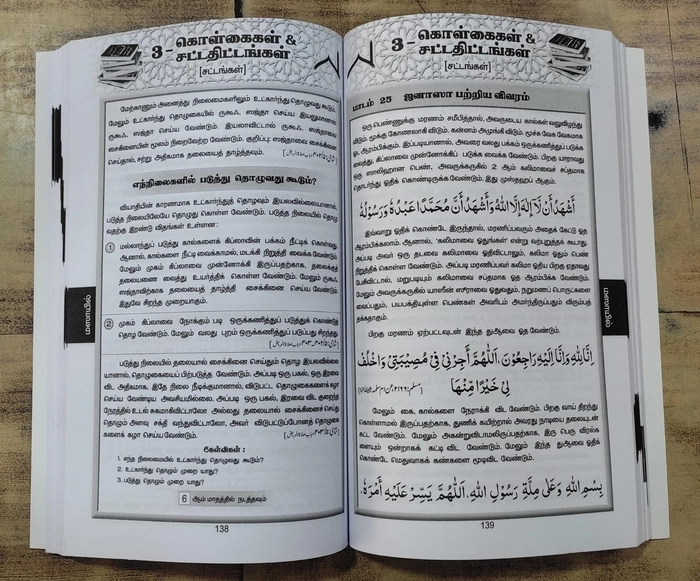 3 - கொள்கைகள் &
சட்டதிட்டங்கள்
[சட்டங்கள்]
மேற்காணும் அனைத்து நிலைமைகளிலும் உட்கார்ந்து தொழுவது கூடும்.
மேலும் உட்கார்ந்து தொழுபவர் இயலுமானால் ருகூஃ, ஸஜ்தா செய்ய இயலுமானால்
ருகூஃ, ஸஜ்தா செய்ய வேண்டும். இயலாவிட்டால் ருகூஃ, ஸஜ்தாவை
சைக்கினையின் மூலம் நிறைவேற்ற வேண்டும். குறிப்பு: ஸஜ்தாவை சைக்கினை
செய்தால், சற்று அதிகமாக தலையைத் தாழ்த்தவும்.
எந்நிலைகளில் படுத்து தொழுவது கூடும்?
வியாதியின் காரணமாக உட்கார்ந்துத் தொழவும் இயலவில்லையானால்,
படுத்த நிலையிலேயே தொழுது கொள்ள வேண்டும். படுத்த நிலையில் தொழு
வதற்கு இரண்டு விதங்கள் உள்ளன:
1 மல்லாந்துப் படுத்து கால்களைக் கிப்லாவின் பக்கம் நீட்டிக் கொள்வது.
ஆனால், கால்களை நீட்டி வைக்காமல், மடக்கி நிறுத்தி வைக்க வேண்டும்.
மேலும் முகம் கிப்லாவை முன்னோக்கி இருப்பதற்காக, தலைக்குத்
தலையணை வைத்து உயர்த்திக் கொள்ள வேண்டும். மேலும் ருகூஃ,
ஸஜ்தாவிற்காக தலையைத் தாழ்த்தி சைக்கினை செய்ய வேண்டும்.
இதுவே சிறந்த முறையாகும்.
2 முகம் கிப்லாவை நோக்கும் படி ஒருக்கணித்துப் படுத்துக் கொண்டு
தொழ வேண்டும். மேலும் வலது புறம் ஒருக்கணித்துப் படுப்பது சிறந்தது
படுத்து நிலையில் தலையால் சைக்கினை செய்தும் தொழ இயலவில்லை
யானால், தொழுகையைப் பிற்படுத்த வேண்டும். அப்படி ஒரு பகல், ஒரு இரவை
விட அதிகமாக, இதே நிலை நீடிக்குமானால், விடுபட்ட தொழுகைகளைக் கழா
செய்ய வேண்டிய அவசியமில்லை. அப்படி ஒரு பகல், இரவை விட குறைந்த
நேரத்தில் உடல் சுகமாகிவிட்டாலோ அல்லது தலையால் சைக்கினைச் செய்து
தொழும் அளவு சக்தி வந்துவிட்டாலோ, அவர் விடுபட்டுப்போனத் தொழுகை
களைக் கழா செய்ய வேண்டும்.
கேள்விகள் :
1. எந்த நிலைமையில் உட்கார்ந்து தொழுவது கூடும்?
2. உட்கார்ந்து தொழும் முறை யாது?
3. படுத்து தொழும் முறை யாது?
6 ஆம் மாதத்தில் நடத்தவும்
138
மஸாயில்
3 - கொள்கைகள் &
சட்டதிட்டங்கள்
[சட்டங்கள்]
பாடம் 25 ஜனாஸா பற்றிய விவரம்
ஒரு பெண்ணுக்கு மரணம் சமீபித்தால், அவருடைய கால்கள் வலுவிழந்து
விடும். மூக்கு கோணலாகி விடும். கன்னம் அமுங்கி விடும். மூச்சு வேக வேகமாக
ஓட ஆரம்பிக்கும். இப்படியானால், அவரை வலது பக்கம் ஒருக்கணித்துப் படுக்க
வைத்து, கிப்லாவை முன்னோக்கிப் படுக்க வைக்க வேண்டும். பிறகு யாராவது
ஒரு ஸாலிஹான பெண், அவருக்கருகில் 2 ஆம் கலிமாவைச் சப்தமாக
தொடர்ந்து ஓதிக் கொண்டிருக்க வேண்டும். இது முஸ்தஹப் ஆகும்.
أَشْهَدُ أَنْ لَّا إِلٰهَ إِلَّا اللهُ وَأَشْهَدُ أَنَّ مُحَمَّدًا عَبْدُهُ وَرَسُولُهُ
இவ்வாறு ஓதிக் கொண்டே இருந்தால், மரணிப்பவரும் அதைக் கேட்டு ஓத
ஆரம்பிக்கலாம். ஆனால், 'கலிமாவை ஓதுங்கள்' என்று வற்புறுத்தக் கூடாது.
அப்படி அவர் ஒரு தடவை கலிமாவை ஓதிவிட்டாலும், கலிமா ஓதும் பெண்
நிறுத்திக் கொள்ள வேண்டும். அப்படி மரணிப்பவர் கலிமா ஓதிய பிறகு ஏதாவது
பேசிவிட்டால், மறுபடியும் கலிமாவை சப்தமாக ஓத ஆரம்பிக்க வேண்டும்.
மேலும் அவருக்கருகில் யாஸீன் ஸூராவை ஓதுவதும், நறுமணப் பொருட்களை
வைப்பதும், பயபக்தியுள்ள பெண்கள் அவரிடம் அமர்ந்திருப்பதும் விரும்பத்
தக்கதாகும்.
பிறகு மரணம் ஏற்பட்டவுடன் இந்த துஆவை ஓத வேண்டும்.
إِنَّا لِلّٰهِ وَإِنَّا إِلَيْهِ رَاجِعُونَ، اَللّٰهُمَّ أْجُرْنِي فِي مُصِيبَتِي وَاخْلُفْ
لِي خَيْرًا مِّنْهَا
மேலும் கை, கால்களை நேராக்கி விட வேண்டும். பிறகு வாய் திறந்து
கொள்ளாமல் இருப்பதற்காக, துணிக் கயிற்றால் அவரது நாடியை தலையுடன்
கட்ட வேண்டும். மேலும் அகன்றுவிடாமலிருப்பதற்காக, இரு பெரு விரல்க
ளையும் ஒன்றாகக் கட்டி விட வேண்டும். மேலும் இந்த துஆவை ஓதிக்
கொண்டே மெதுவாகக் கண்களை மூடிவிட வேண்டும்.
بِسْمِ اللهِ وَعَلٰى مِلَّةِ رَسُولِ اللهِ، اَللّٰهُمَّ يَسِّرْ عَلَيْهِ أَمْرَهُ،
139
மஸாயில்